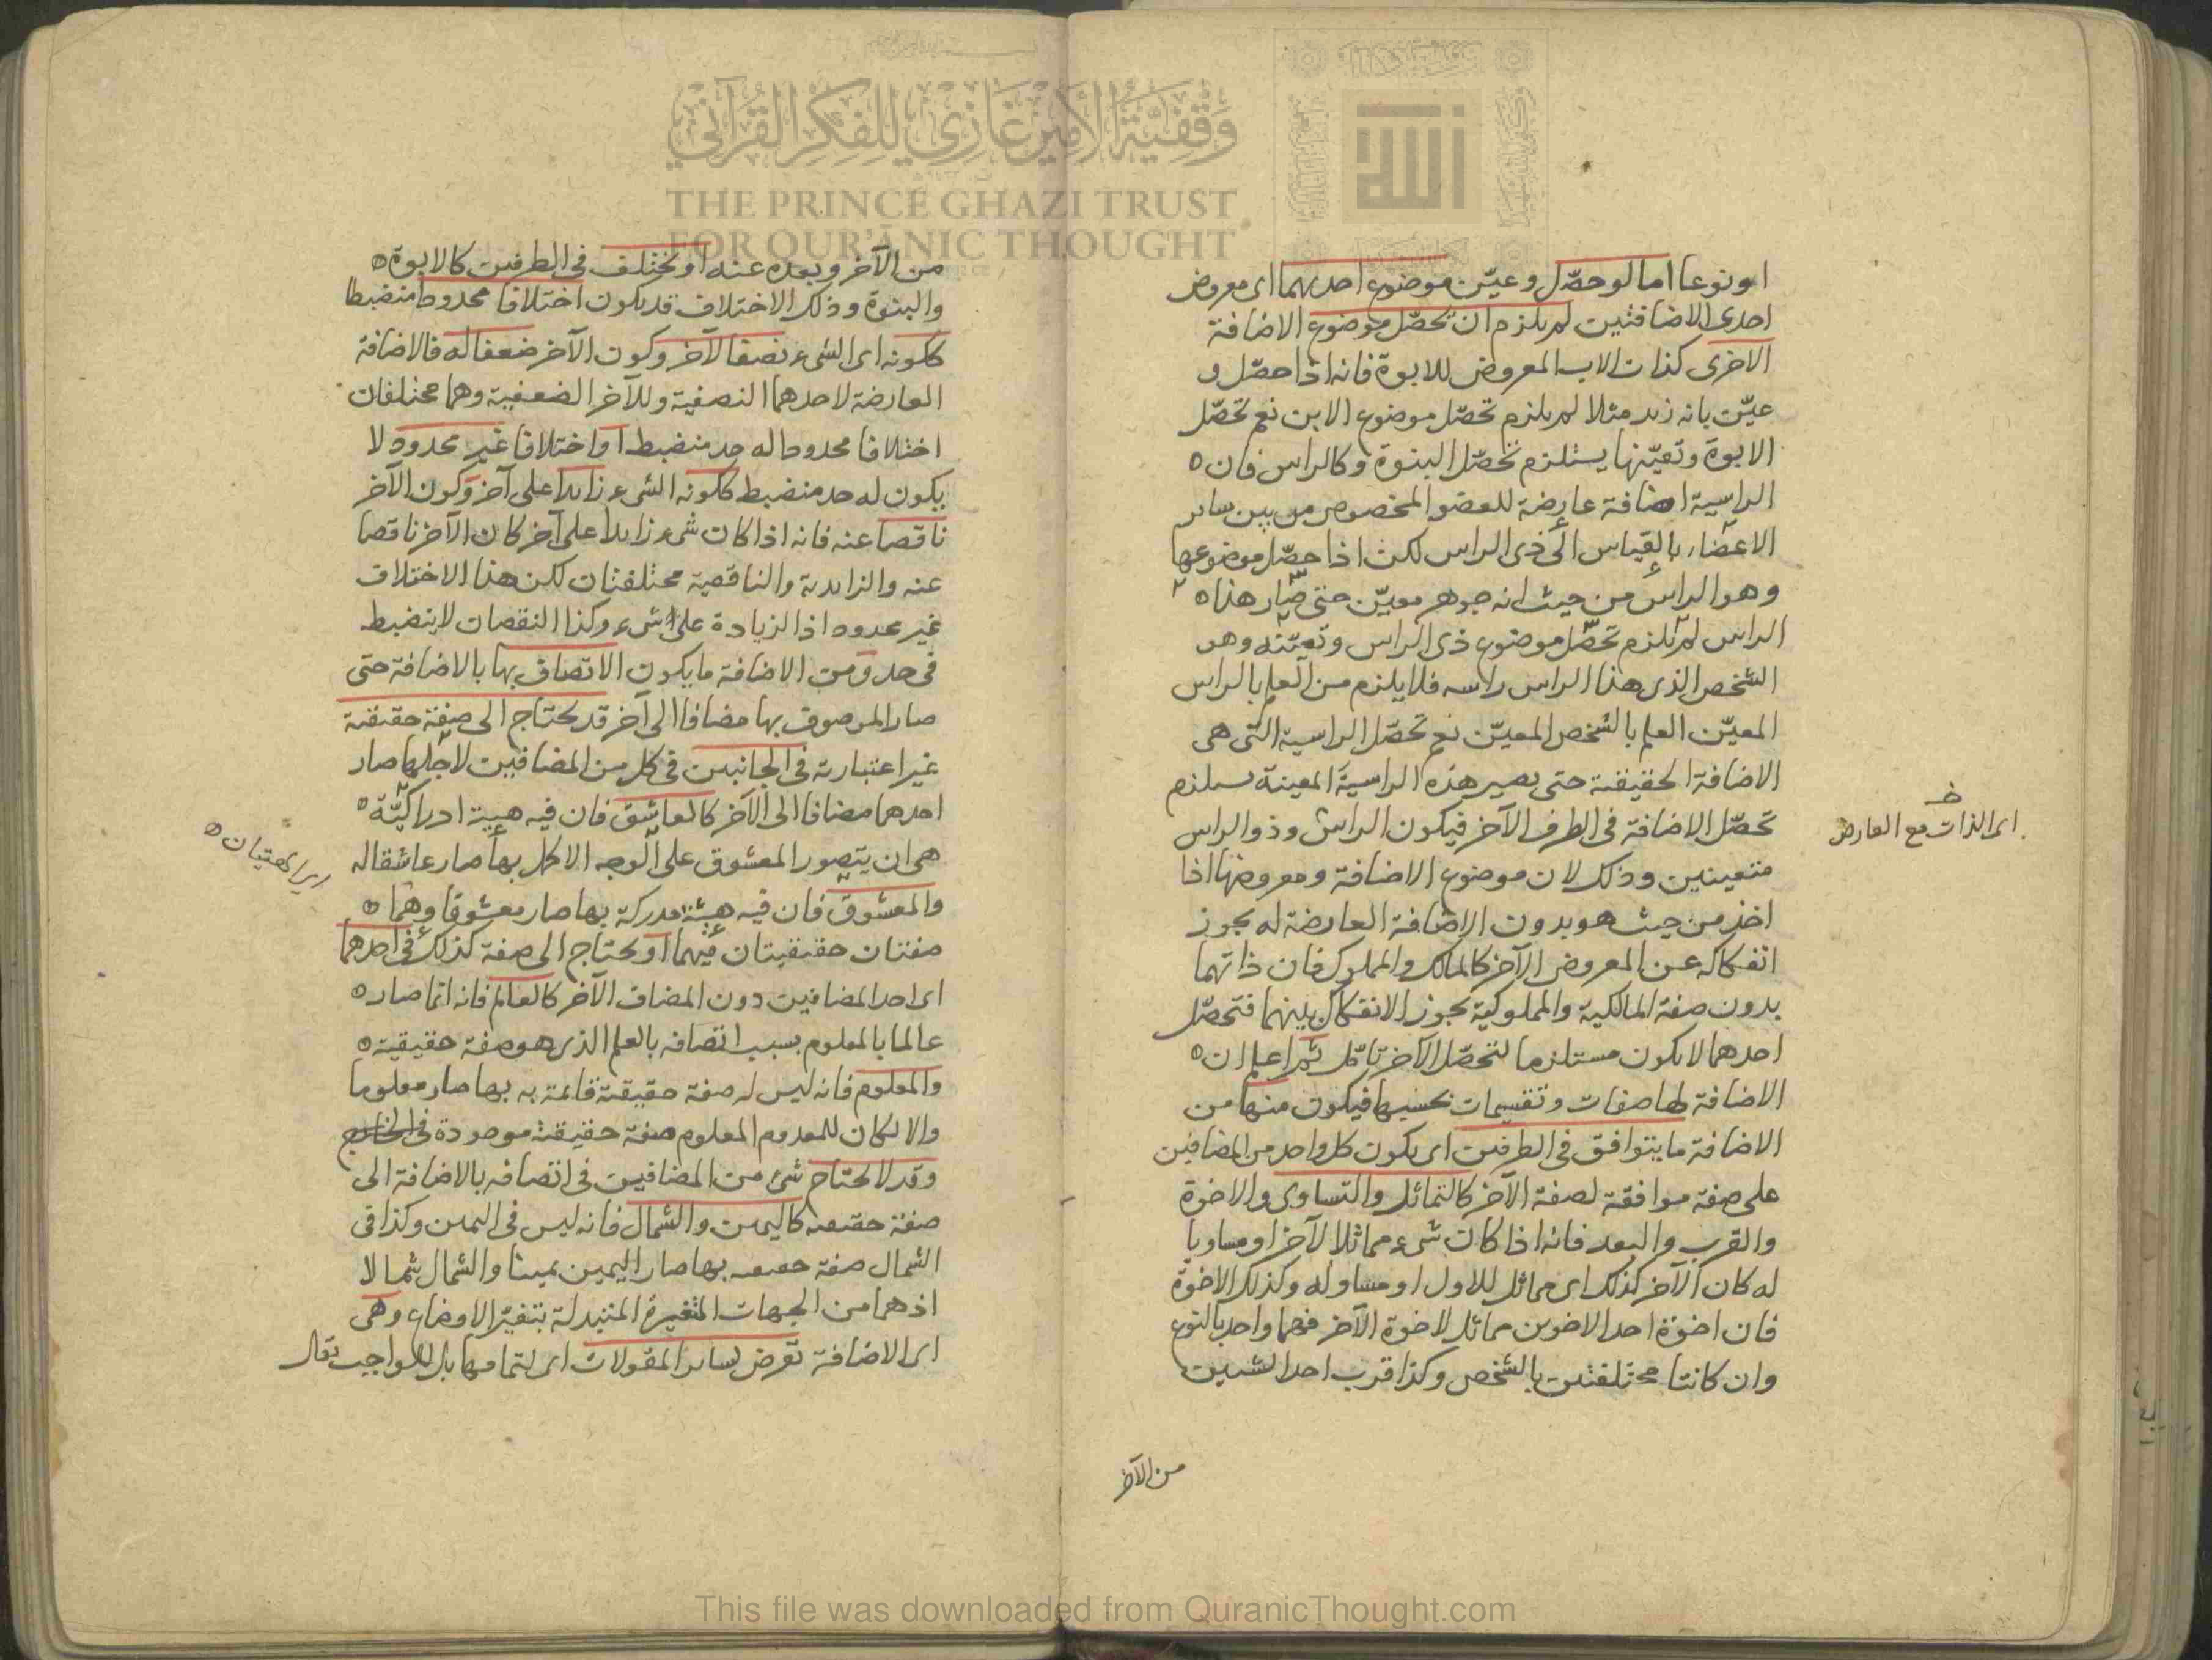 او نوعا اما لو حصّل وعيّن موضوع احديهما اى معروض
احدى الاضافتين لم يلزم ان تحصّل موضوع الاضافة
الاخرى كذات الاب المعروض للابوة فانه اذا حصّل و
عيّن بانه زيد مثلا لم يلزم تحصّل موضوع الابن نعم تحصّل
الابوة وتعيّنها يستلزم تحصّل البنوة وكالراس فان
الراسية اضافة عارضة للعضو المخصوص من بين ساير
الاعضاء بالقياس الى ذى الراس لكن اذا حصّل موضوعها
وهو الراس من حيث انه جوهر معيّن حتى صار هذا
الراس لم يلزم تحصّل موضوع ذى الراس وتعيّنه وهو
الشخص الذى هذا الراس راسه فلا يلزم من العلم بالراس
المعيّن العلم بالشخص المعيّن نعم تحصّل الراسية التى هى
الاضافة الحقيقية حتى يصير هذه الراسية المعينة يستلزم
تحصّل الاضافة فى الطرف الآخر فيكون الراس وذو الراس
متعينين وذلك لان موضوع الاضافة ومعروضها اذا
اخذ من حيث هو بدون الاضافة العارضة له يجوز
انفكاكه عن المعروض الآخر كالمالك والمملوك فان ذاتهما
بدون صفة المالكية والمملوكية يجوز الانفكاك بينهما فتحصّل
احدهما لا يكون مستلزما لتحصّل الآخر تامّل ثم اعلم ان
الاضافة لها صفات وتقسيمات بحسبها فيكون منها من
الاضافة ما يتوافق فى الطرفين اى يكون كل واحد من المضافين
على صفة موافقة لصفة الآخر كالتماثل والتساوى والاخوة
والقرب والبعد فانه اذا كان شىء مماثلا لآخر او مساويا
له كان الآخر كذلك اى مماثل للاول او مساو له وكذلك الاخوة
فان اخوة احد الاخوين مماثل لاخوة الآخر فهما واحد بالنوع
وان كانتا مختلفتين بالشخص وكذا قرب احد الشيئين
من الآخر
اى الذات مع العارض
من الآخر وبعده عنه او تختلف فى الطرفين كالابوة
والبنوة وذلك الاختلاف قد يكون اختلافا محدودا منضبطا
ككونه اى الشىء نصفا لآخر وكون الآخر ضعفا له فالاضافة
العارضة لاحدهما النصفية وللآخر الضعفية وهما مختلفان
اختلافا محدودا له حد منضبط او اختلافا غير محدود لا
يكون له حد منضبط ككونه الشىء زايدا على آخر وكون الآخر
ناقصا عنه فانه اذا كان شىء زايدا على آخر كان الآخر ناقصا
عنه والزايدية والناقصية مختلفتان لكن هذا الاختلاف
غير محدود اذ الزيادة على شىء وكذا النقصان لا ينضبط
فى حد ومن الاضافة ما يكون الاتصاف بها بالاضافة حتى
صار الموصوف بها مضافا الى آخر قد يحتاج الى صفة حقيقية
غير اعتبارية فى الجانبين فى كل من المضافين لاجلها صار
احدهما مضافا الى الآخر كالعاشق فان فيه هيئة ادراكيّة
هى ان يتصور المعشوق على الوجه الاكمل بها صار عاشقا له
والمعشوق فان فيه هيئة مدركة بها صار معشوقا وهما
صفتان حقيقيتان فيهما او يحتاج الى صفة كذلك فى احدهما
اى احد المضافين دون المضاف الآخر كالعالم فانه انما صار
عالما بالمعلوم بسبب اتصافه بالعلم الذى هو صفة حقيقية
والمعلوم فانه ليس له صفة حقيقية قائمة به بها صار معلوما
والا لكان للمعدوم المعلوم صفة حقيقية موجودة فى الخارج
وقد لا يحتاج شىء من المضافين فى اتصافه بالاضافة الى
صفة حقيقية كاليمين والشمال فانه ليس فى اليمين وكذا فى
الشمال صفة حقيقية بها صار اليمين يمينا والشمال شمالا
اذ هما من الجهات المتغيرة المتبدلة بتغيّر الاوضاع وهى
اى الاضافة تعرض لساير المقولات اى لتمامها بل للواجب تعال
وَقْفِيَّةُ الأَمِيرْ غَازِي لِلْفِكْرِ القُرْآنِيّ
THE PRINCE GHAZI TRUST
FOR QUR'ĀNIC THOUGHT
This file was downloaded from QuranicThought.com